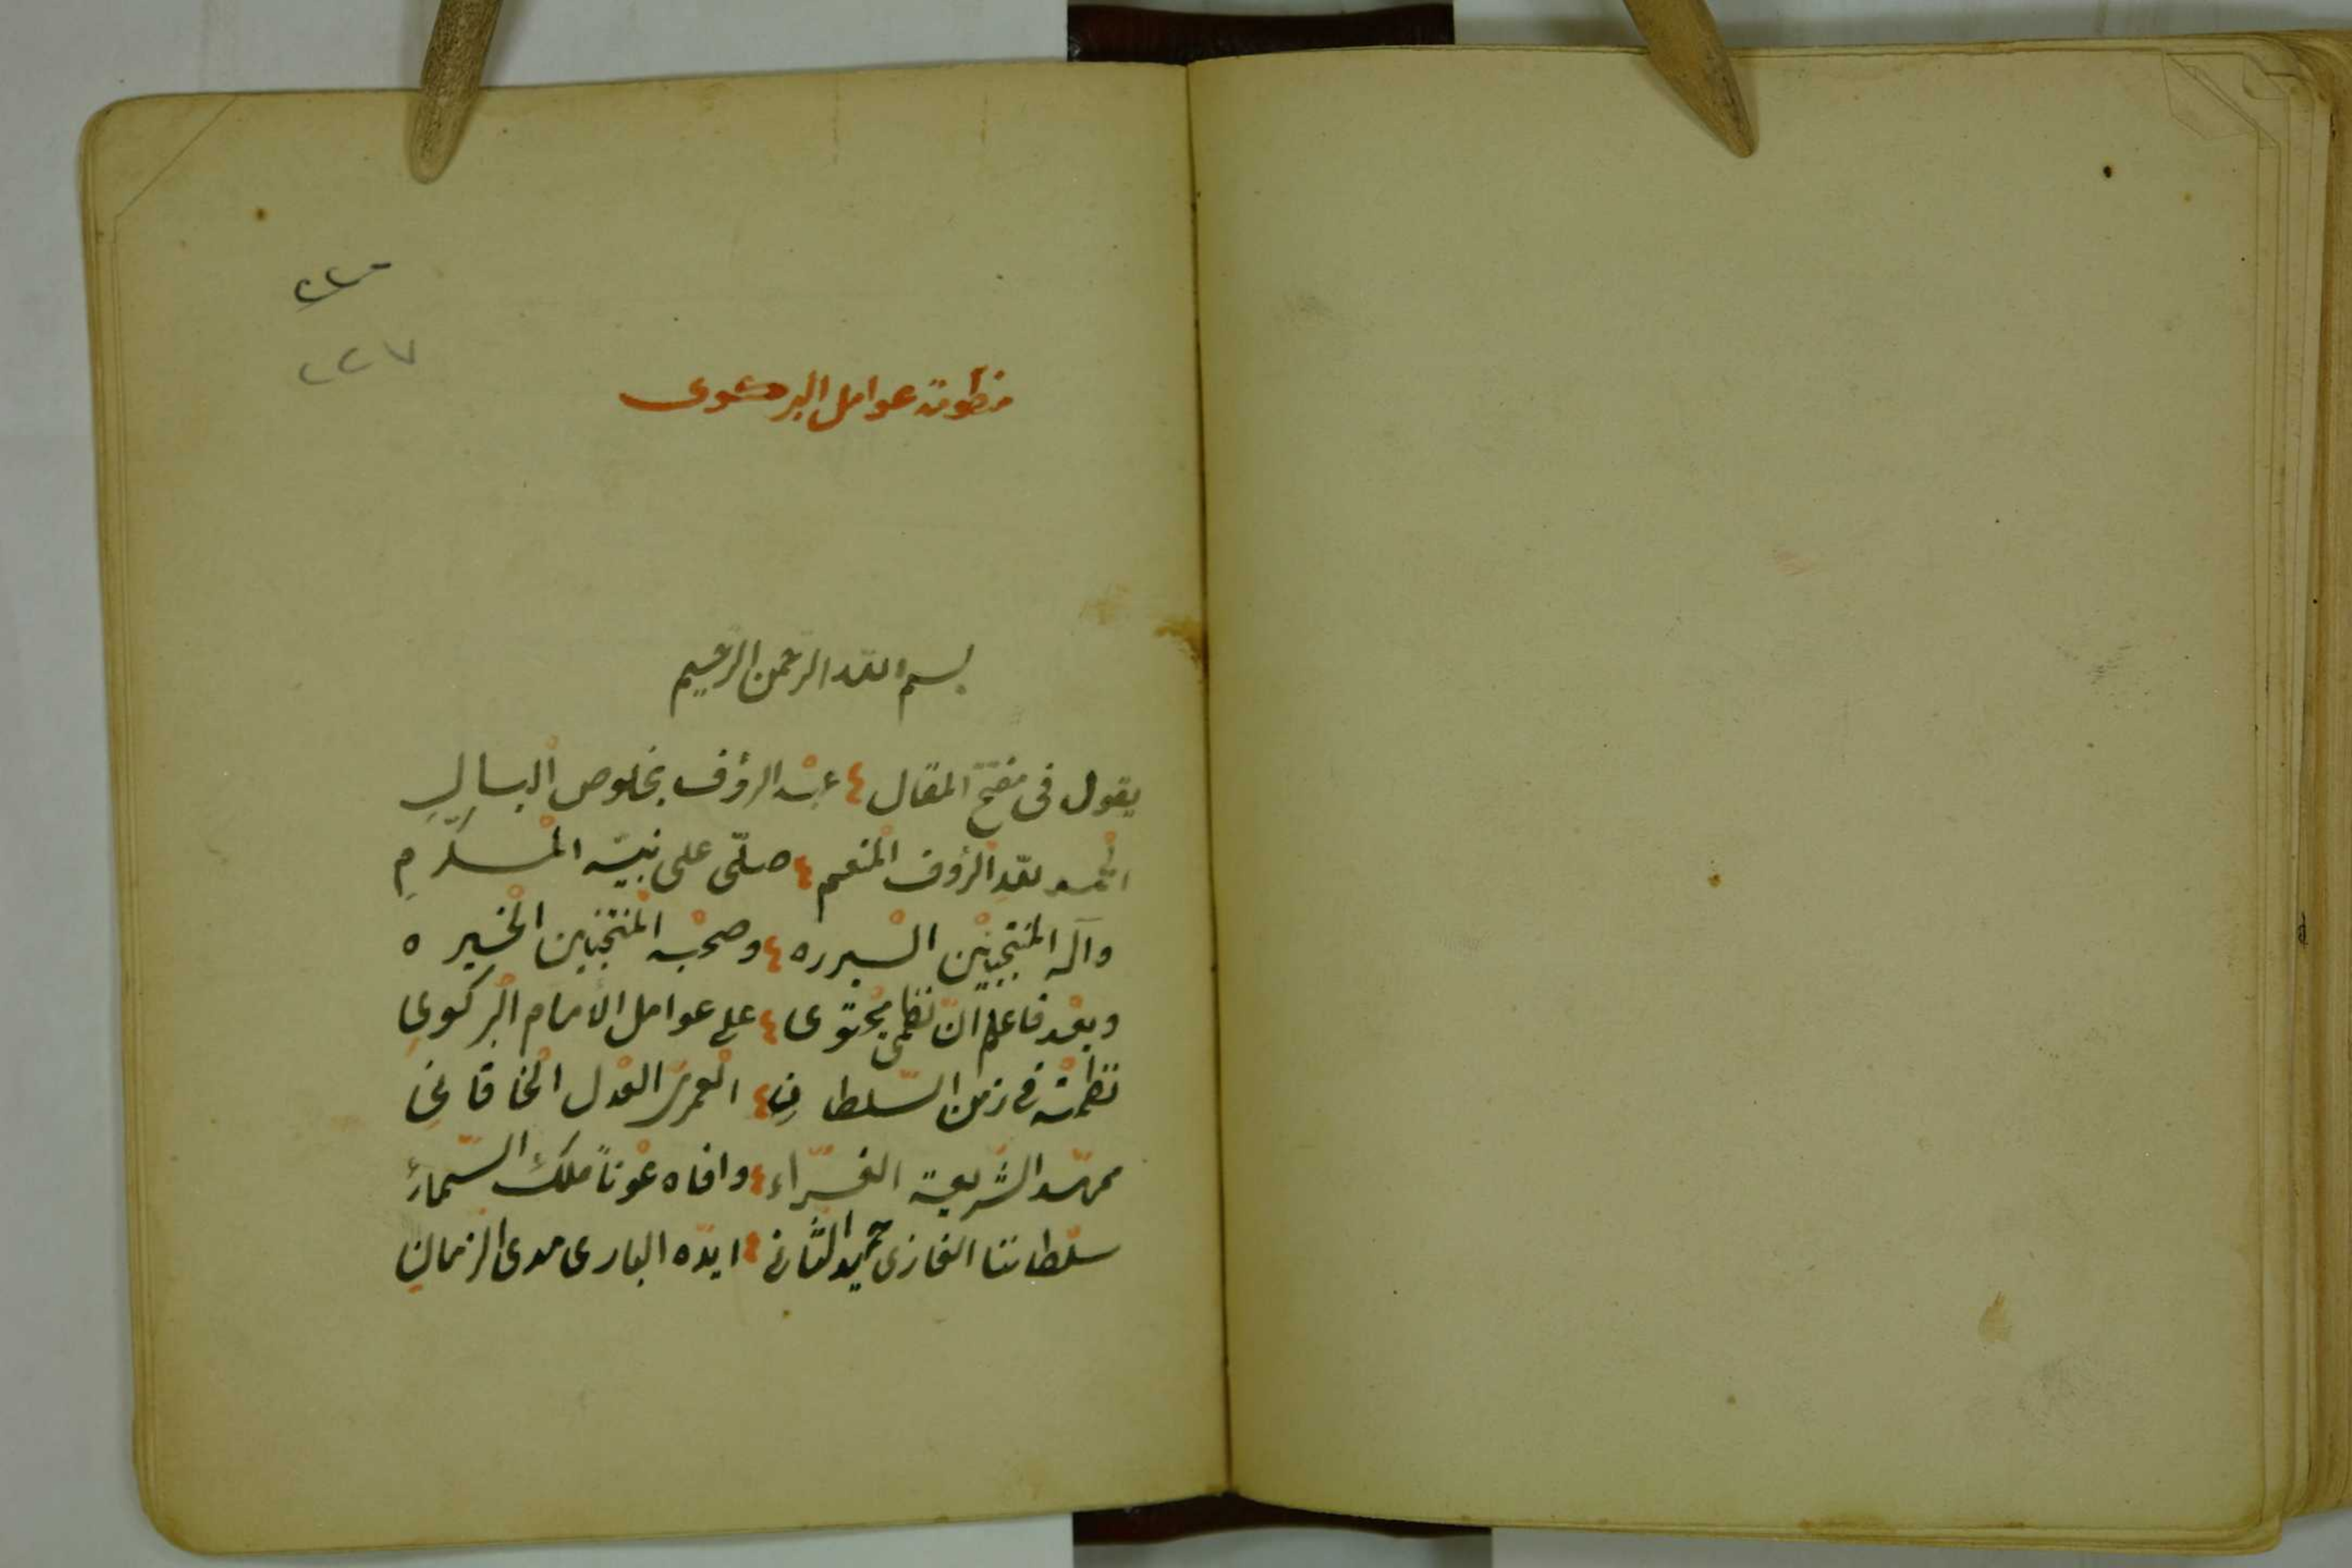 ٢٢٧
منظومة عوامل البركوى
بسم الله الرحمن الرحيم
يقول فى مفتتح المقال ٤ عبْد الرؤف بخلوص الْبالِ
الحمْد للّه الْرؤف الْمنعم ٤ صلّى على نبيّه الْمكرّمِ
وآله المنتجبيْن الْبررة ٤ وصحْبه الْمنتخبين الْخيره
وبعْد فاعلم انّ نظمى يحْتوى ٤ على عوامل الامام الْبركوىِ
نظمْته فى زمن السّلطانِ ٤ الْعمرىّ الْعدل الْخاقانِى
ممهّد الشّريعة الغرّاء ٤ وافاه عوْناً ملك السّماءِ
سلْطاننا الغازى حميد الثّانى ٤ ايّده البارى مدى الزمانِ